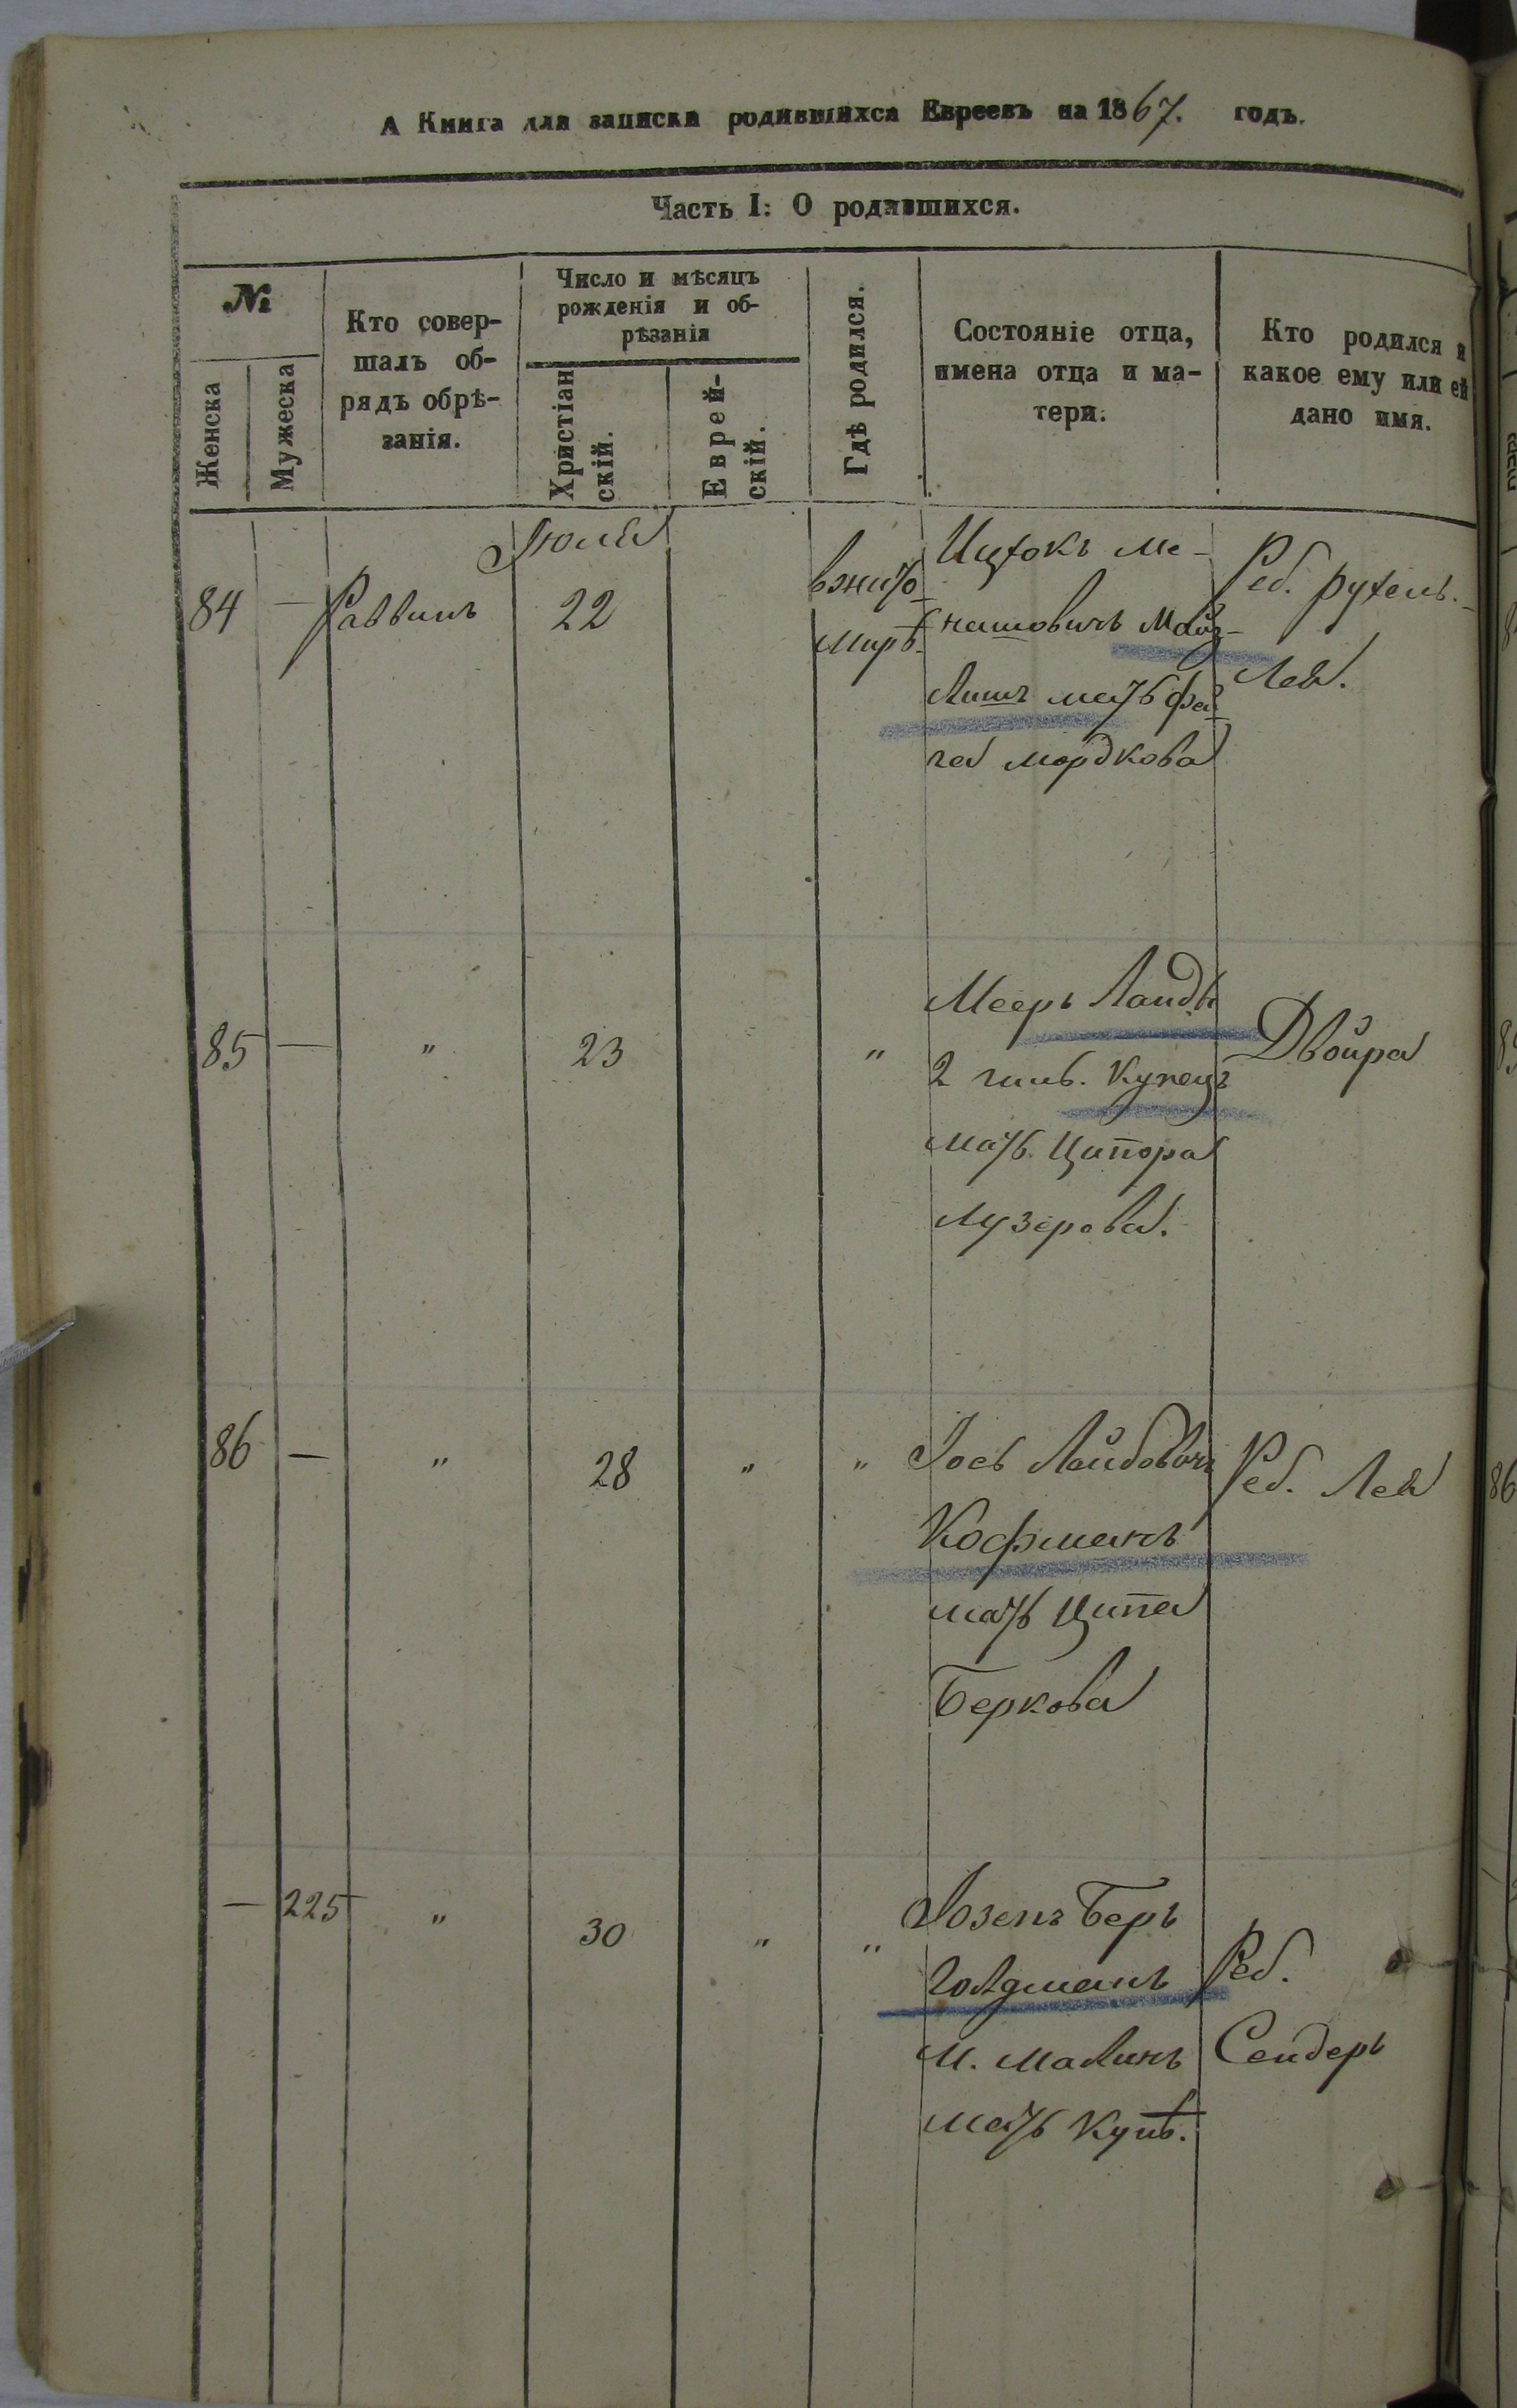 А Книга для записки родившихся Евреевъ на 1867. годъ.
Часть I: О родившихся.
№
Женска
Мужеска
Кто совер-
шалъ об-
рядъ обрѣ-
занія.
Число и мѣсяцъ
рожденія и об-
рѣзанія
Христіан
скій.
Еврей-
скій.
Гдѣ родился.
Состояніе отца,
имена отца и ма-
тери.
Кто родился и
какое ему или ей
дано имя.
Іюля
84 — Раввинъ 22
вжито
миръ
Ицхокъ Ме-
нашовичъ Майз
лишъ мать Фей
га Мордкова
Реб. Рухель.
Лея.
85 — " 23 "
Мееръ Ландъ
2 гиль. купецъ
мать Ципора
Лузерова.
Двойра
86 — " 28 " "
Іось Лейбовичъ
Кофманъ
мать Ципа
Беркова
Реб. Лея
— 225 " 30 " "
Іозепъ Беръ
Голдманъ
М. Малинъ
мать
Реб.
Сендеръ